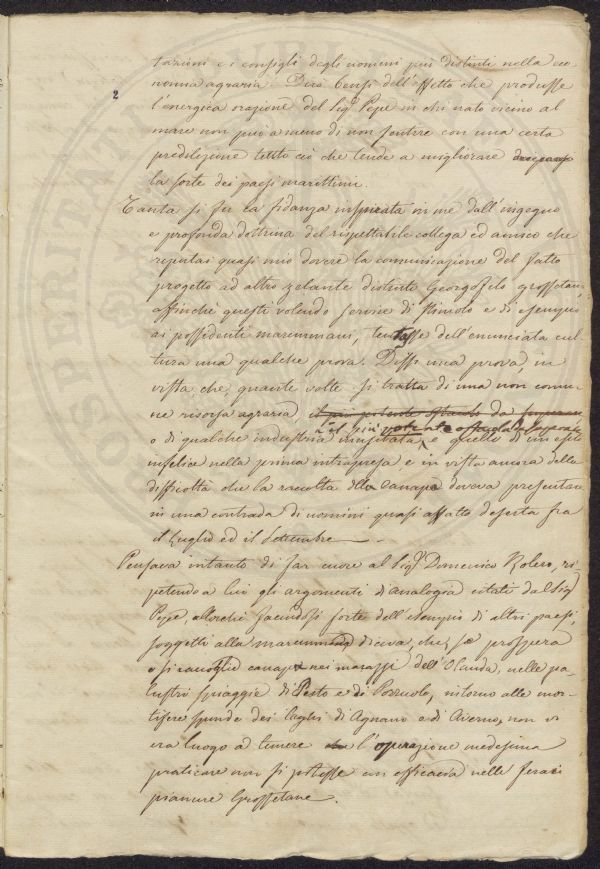 tazioni e i consigli degli uomini più distinti nella eco-
nomia agraria. Dirò bensì dell'effetto che produsse
2
l'energica orazione del Sig.r Pepe in chi nato vicino al
mare non può a meno di non sentire con una certa
predilezione tutto ciò che tende a migliorare
la sorte dei paesi marittimi.
Tanta si fu la fidanza inspirata in me dall'ingegno
e profonda dottrina del rispettabile collega ed amico che
reputai quasi mio dovere la comunicazione del fatto
progetto ad altro zelante distinto Georgofilo grossetano
affinchè questi volendo servire di stimolo e di esempio
ai possidenti maremmani, tentasse dell'enunciata cul-
tura una qualche prova. Dissi una prova, in
vista che quante volte si tratta di una non comu-
ne risorsa agraria il più potente ostacolo da superare
è il più potente ostacolo da superarsi
o di qualche industria inusitata, e quello di un esito
infelice nella prima intrapresa e in vista ancora delle
difficoltà che la raccolta della Canapa doveva presentare
in una contrada di uomini quasi affatto deserta fra
il Luglio ed il Settembre —.
Pensava intanto di far cuore al Sig.r Domenico, ri-
petendo a lui gli argomenti d'analogia citati dal Sig.r
Pepe, allorchè facendosi forte dell'esempio di altri paesi,
soggetti alla maremmana diceva, che, se prospera
o si raccoglie canapa nei marassi dell'Olanda, nelle pa-
lustri spiaggie di Pesto e di Pozzuolo, intorno alle mor-
tifere sponde dei laghi di Agnano e di Averno, non vi
era luogo a temere che l'operazione medesima
praticare non si potesse con efficacia nelle feraci
pianure Grossetane.